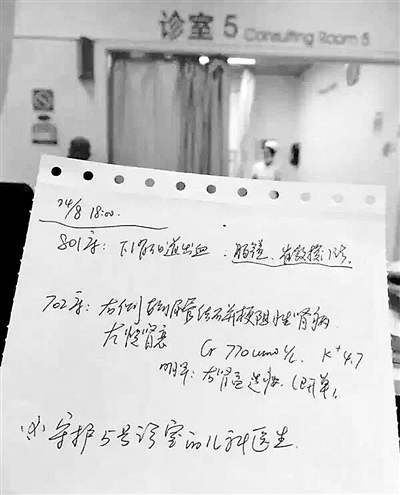 诊室 5 Consulting Room 5
24/8 18:00.
801床: 下消化道出血. 肠镜.
702床: 右侧输尿管结石并梗阻性肾病
左慢肾衰 Cr 770umol/L K+ 4.7
明早: 右肾造瘘.
(4) 守护5号诊室的儿科医生.